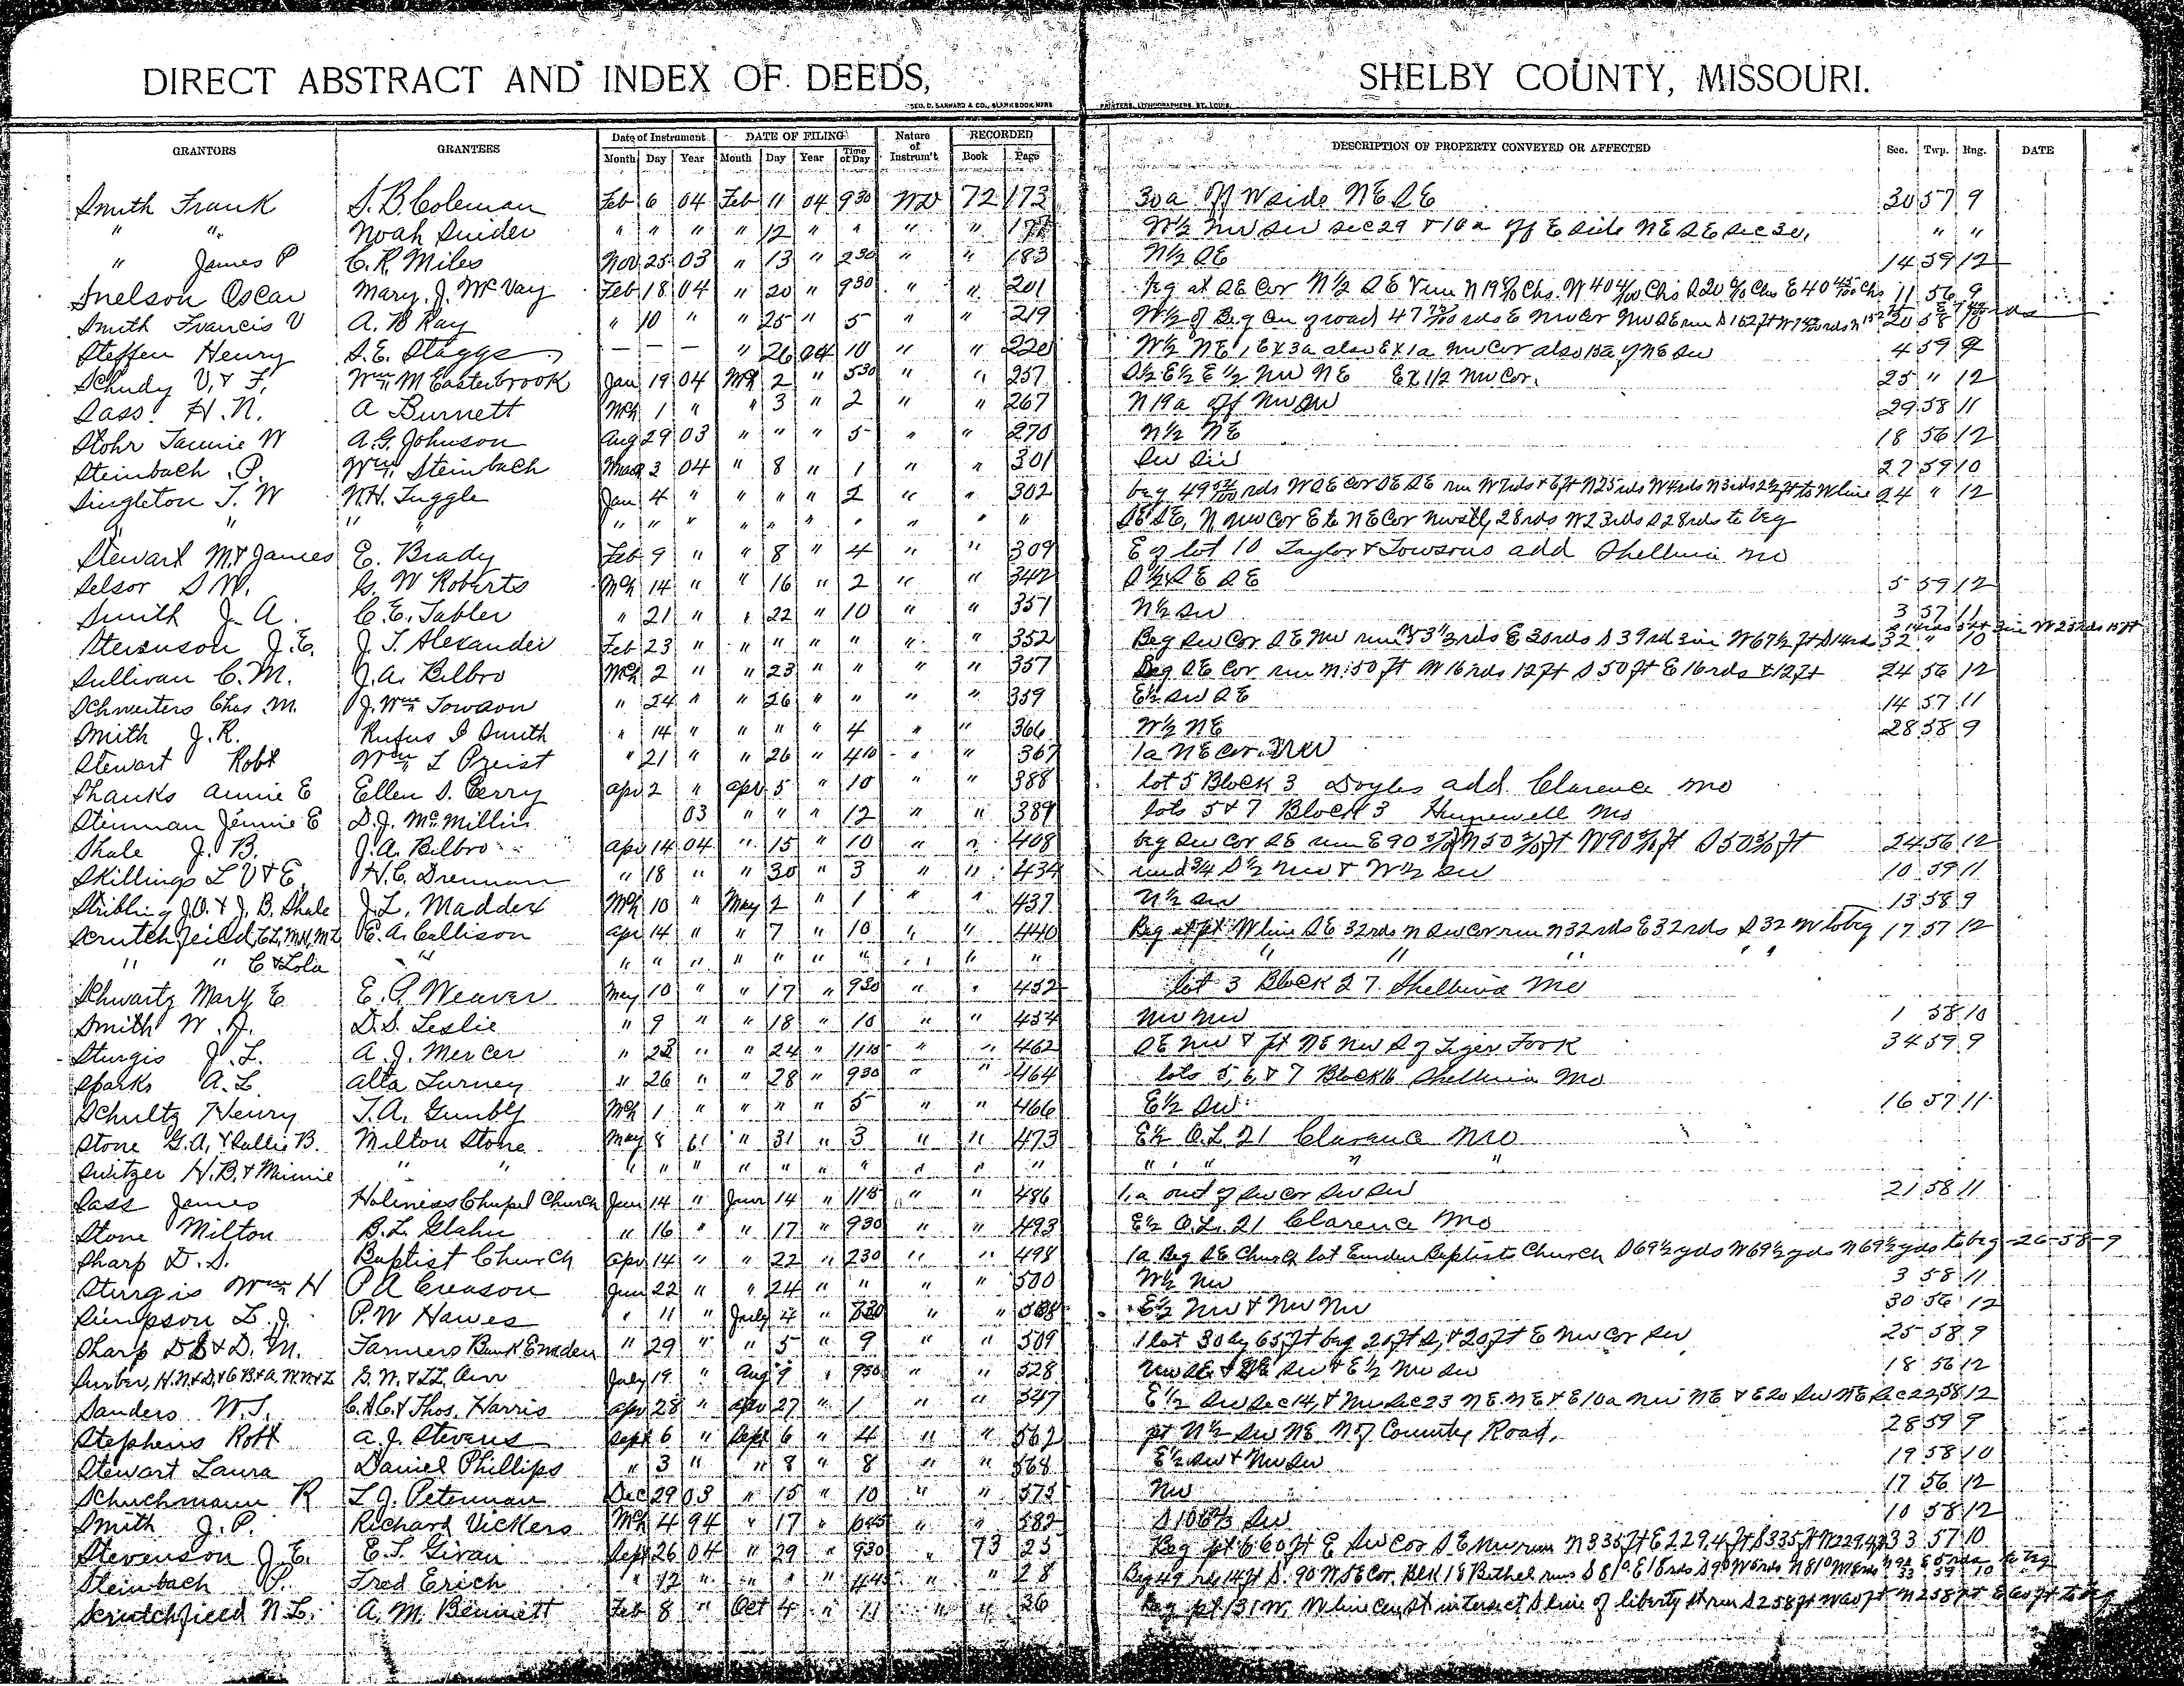 DIRECT ABSTRACT AND INDEX OF DEEDS, SHELBY COUNTY, MISSOURI.
GEO. D. BARNARD & CO., BLANK BOOK MFRS PRINTERS, LITHOGRAPHERS, ST. LOUIS.
GRANTORS GRANTEES Date of Instrument DATE OF FILING Nature of Instrum't RECORDED DESCRIPTION OF PROPERTY CONVEYED OR AFFECTED Sec. Twp. Rng. DATE
Month Day Year Month Day Year Time of Day Book Page
Smith Frank S. B. Coleman Feb 6 04 Feb 11 04 9 30 WD 72 173 30a off W side NE SE 30 57 9
" " Noah Snider " " " " 12 " " " " W½ NW SW Sec 29 & 10a off E side NE SE Sec 30, " "
" James P C. R. Miles Nov 25 03 " 13 " 2 30 " " 183 N½ SE 14 59 12
Snelson Oscar Mary J. McVay Feb 18 04 " 20 " 9 30 " " 201 beg at SE Cor N½ SE run N 19 11 56 9
Smith Francis V A. B Ray " 10 " " 25 " 5 " " 219 W½ of Beg 20 58 10
Steffen Henry S. E. Staggs — — — " 26 04 10 " " 220 W½ NE, Ex 3a also Ex 1a NW Cor also 4 59 9
Schudy V. & F. Wm M Easterbrook Jan 19 04 Mch 2 " 5 30 " " 257 S½ E½ E½ NW NE Ex 1½ NW Cor. 25 " 12
Sass H. N. A Burnett Mch 1 " " 3 " 2 " " 267 N 19a off NW SW 29 58 11
Stohr Tannie W A. G. Johnson Aug 29 03 " " " 5 " " 270 N½ NE 18 56 12
Steinbach P. Wm Steinbach Mar 3 04 " 8 " 1 " " 301 SW SW 27 59 10
Singleton T. W N. H. Tuggle Jan 4 " " " " 2 " " 302 beg 49 rds W SE Cor SE SE run W 7 rds & 6 ft N 25 rds W 4 rds N 3 rds 2½ ft to W line 24 " 12
" " " " " " " " " " " " " SE SE, N NW Cor E to NE Cor NWstly 28 rds W 23 rds S 28 rds to beg
Stewart M. & James E. Brady Feb 9 " " 8 " 4 " " 309 E of lot 10 Taylor & Towsons add Shelbina Mo
Selsor S M. G. W Roberts Mch 14 " " 16 " 2 " " 342 S½ SE SE 5 59 12
Smith J A. C. E. Tabler " 21 " " 22 " 10 " " 351 N½ SW 3 57 11
Stevenson J. E. J. T. Alexander Feb 23 " " " " " " " 352 Beg SW Cor SE NW run N 53⅓ rds E 30 rds S 39 rd W 67½ ft S 14 rd 32 " 10
Sullivan C. M. J. A. Bilbro Mch 2 " " 23 " " " " 357 Beg SE Cor run N. 50 ft W 16 rds 12 ft S 50 ft E 16 rds & 12 ft 24 56 12
Schwieters Chas. M. J. Wm Towson " 24 " " 26 " " " " 359 E½ SW SE 14 57 11
Smith J. R. Rufus S Smith " 14 " " " " 4 " " 366 W½ NE 28 58 9
Stewart Robt Wm L Priest " 21 " " 26 " 4 10 " " 367 1a NE Cor. NW
Shanks Annie E Ellen S. Perry Apr 2 " Apr 5 " 10 " " 388 lot 5 Block 3 Doyles add. Clarence Mo
Stenman Jennie E D. J. McMillin 03 " " " 12 " " 389 lots 5 & 7 Block 3 Hunnewell Mo
Shale J. B. J. A. Bilbro Apr 14 04 " 15 " 10 " " 408 beg SW Cor SE run E 90 24 56 12
Skillings L V & E. H. C. Drennan " 18 " " 30 " 3 " " 434 und ¾ S½ NW & W½ SW 10 59 11
Stribling J. O. & J. B. Shale J. L. Maddex Mch 10 " May 2 " 1 " " 437 N½ SW 13 58 9
Scrutchfield, E. A. Callison Apr 14 " " 7 " 10 " " 440 Beg at pt W line SE 32 rds N SW Cor run N 32 rds E 32 rds S 32 W to beg 17 57 12
" " C & Lola " " " " " " " " " " " " " " "
Schwartz Mary E E. P. Weaver May 10 " " 17 " 9 30 " " 452 lot 3 Block 27. Shelbina Mo
Smith W. A. D. S. Leslie " 9 " " 18 " 10 " " 454 NW NW 1 58 10
Sturgis J. L. A. J. Mercer " 23 " " 24 " 11 15 " " 462 SE NW & pt NE NW S of Tiger Fork 34 59 9
Sparks A. L Alta Turney " 26 " " 28 " 9 30 " " 464 lots 5, 6, & 7 Block 16 Shelbina Mo
Schultz Henry T. A. Gunby Mch 1 " " " " 5 " " 466 E½ SW. 16 57 11
Stone G. A. & Sallie B. Milton Stone May 8 61 " 31 " 3 " " 473 E½ O. L. 21 Clarence Mo
Switzer H. B. & Minnie " " " " " " " " " " " " " " " "
Sass James Holiness Chapel Church Jun 14 " Jun 14 " 11 15 " " 486 1.a out of SW Cor SW SW 21 58 11
Stone Milton B. L. Glahn " 16 " " 17 " 9 30 " " 493 E½ O. L. 21 Clarence Mo
Sharp D. S. Baptist Church Apr 14 " " 22 " 2 30 " " 498 1a Beg SE Church lot Emden Baptists Church S 69½ yds W 69½ yds N 69½ yds to beg 26-58-9
Sturgis Wm H P A Creason Jun 22 " " 24 " " " " 500 W½ NW 3 58 11
Simpson L. J. P. W Hawes " 11 " July 4 " 8 30 " " E½ NW & NW NW 30 56 12
Sharp D S & D. M. Farmers Bank Emden " 29 " " 5 " 9 " " 509 1 lot 30 by 65 ft beg 25 ft S, & 20 ft E NW Cor SW 25 58 9
G. N. & L L. Airr July 19 " Aug 9 " 9 30 " " 528 NW SE & NE SW & E½ NW SW 18 56 12
Sanders W. T. C. A. C. & Thos. Harris Apr 28 " Apr 27 " 1 " " 547 E½ SW Sec 14, & NW Sec 23 NE NE & E 10a NW NE & E 20 SW NE Sec 22, 58 12
Stephens Robt A. J. Stevens Sept 6 " Sept 6 " 4 " " 562 pt N½ SW NE N of County Road. 28 59 9
Stewart Laura Daniel Phillips " 3 " " 8 " 8 " " 568 E½ SW & NW SW 19 58 10
Schuchmann R L. J. Peterman Dec 29 03 " 15 " 10 " " 575 NW 17 56 12
Smith J. P. Richard Vickers Mch 4 94 " 17 " 6 45 " " 582 S 106⅔ SW 10 58 12
Stevenson J. E. E. T. Givan Sept 26 04 " 29 " 9 30 " 73 25 Beg pt 660 ft E SW Cor SE NW run N 335 ft E 229.4 ft S 335 ft W 229.4 33 57 10
Steinbach P. Fred Erich " 12 " " " " 4 45 " " 28 Beg 49 14 ft S. 90 W SE Cor. Blk 18 Bethel run S 81° E 18 rds 33 59 10 to beg
Scrutchfield N. L. A. M. Bennett Feb 8 " Oct 4 " 11 " " 36 Beg pt 131 W. W line Cen St intersect S line of liberty St run S 258 ft W 60 ft N 258 ft E 60 ft to beg